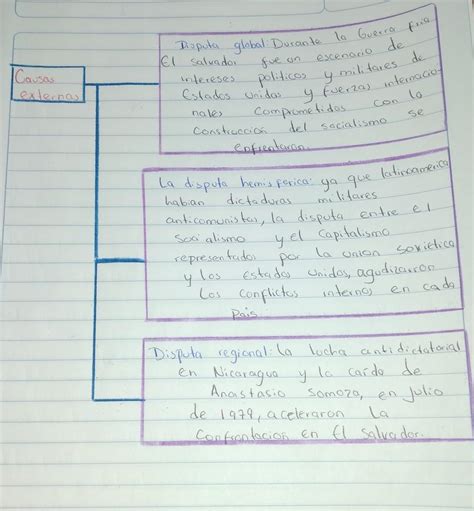 Causas
externas
Disputa global: Durante la Guerra fria
El salvador fue un escenario de
intereses politicos y militares de
Estados unidos y fuerzas internacio-
nales comprometidos con la
construccion del socialismo se
enfrentaron.
La disputa hemisferica: ya que latinoamerica
habian dictaduras militares
anticomunistas, la disputa entre el
socialismo y el capitalismo
representados por la union sovietica
y los estados unidos, agudizarron
Los conflictos internos en cada
pais.
Disputa regional: La lucha antidictatorial
en Nicaragua y la caida de
Anastasio somoza, en julio
de 1979, aceleraron la
confrontacion en El salvador.